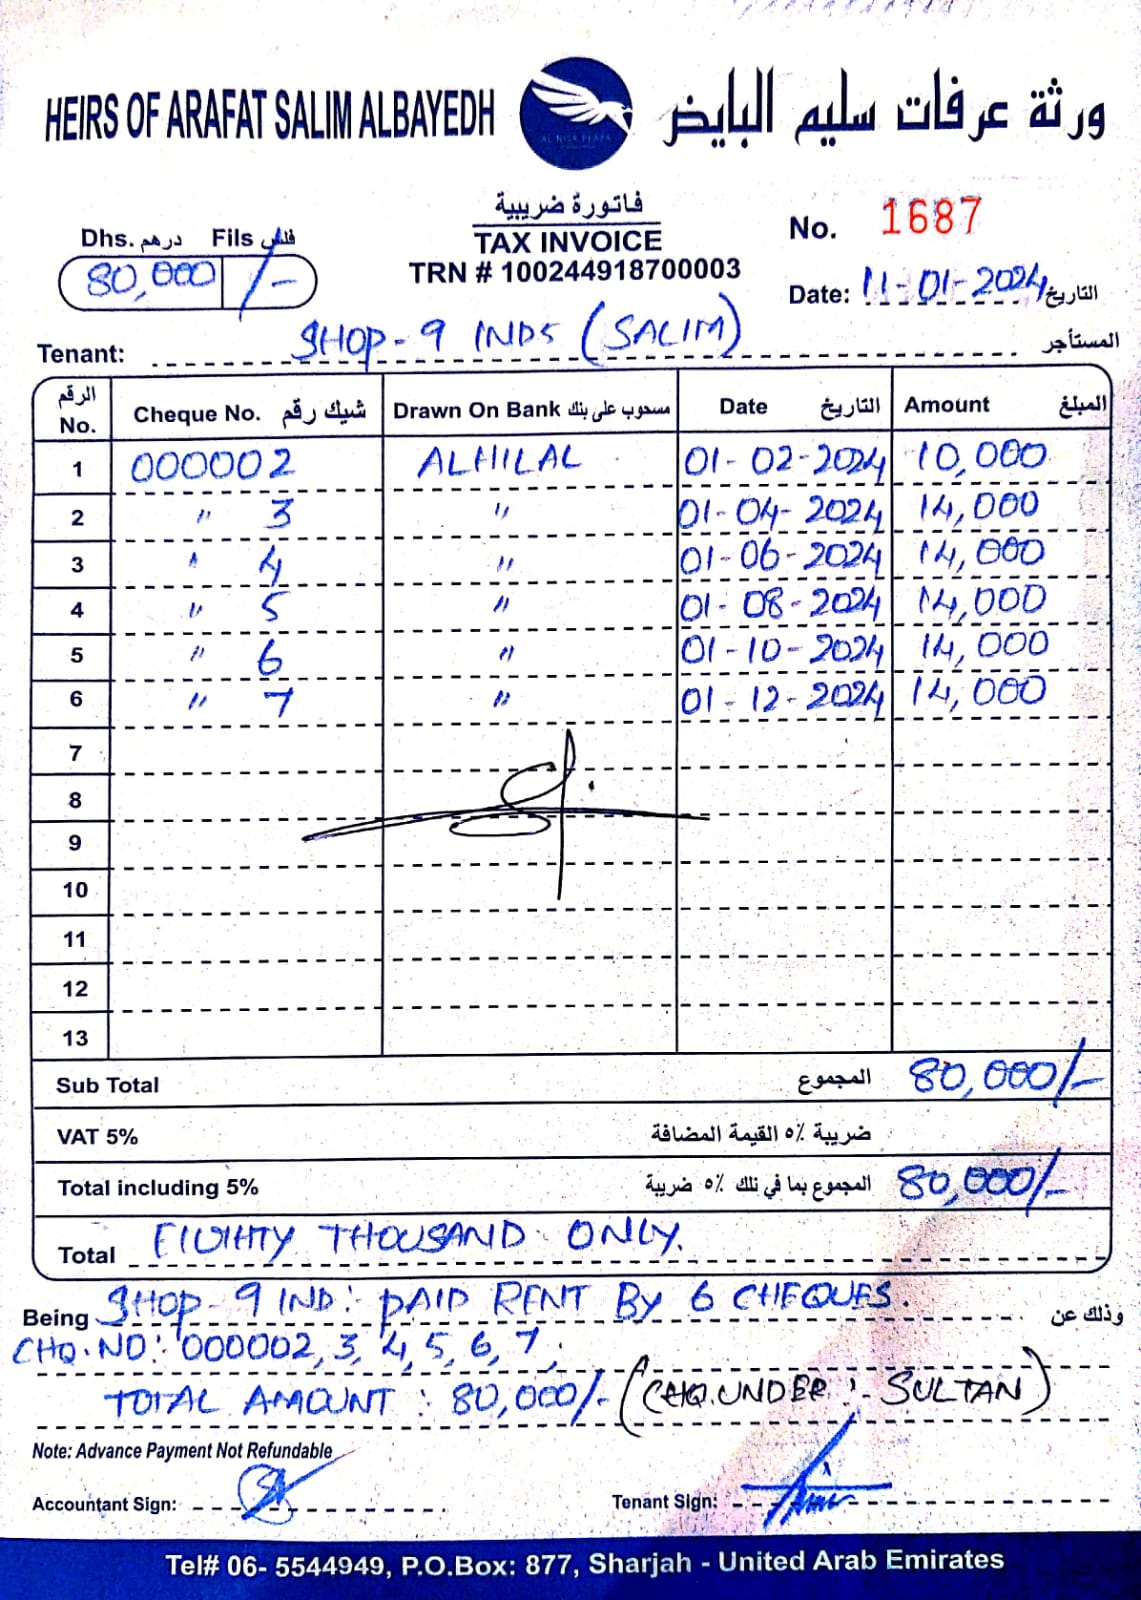 HEIRS OF ARAFAT SALIM ALBAYEDH
AL NISR PLAZA
ورثة عرفات سليم البايض
فاتورة ضريبية
TAX INVOICE
TRN # 100244918700003
No. 1687
Dhs. درهم Fils فلس
80,000 /-
Date: 11-01-2024 التاريخ
Tenant: SHOP-9 INDS (SALIM) المستأجر
الرقم No. Cheque No. شيك رقم Drawn On Bank مسحوب على بنك Date التاريخ Amount المبلغ
1 000002 ALHILAL 01-02-2024 10,000
2 " 3 " 01-04-2024 14,000
3 " 4 " 01-06-2024 14,000
4 " 5 " 01-08-2024 14,000
5 " 6 " 01-10-2024 14,000
6 " 7 " 01-12-2024 14,000
7
8
9
10
11
12
13
Sub Total المجموع 80,000/-
VAT 5% ضريبة ٥٪ القيمة المضافة
Total including 5% المجموع بما في تلك ٥٪ ضريبة 80,000/-
Total EIGHTY THOUSAND ONLY.
Being SHOP-9 IND: PAID RENT BY 6 CHEQUES. وذلك عن
CHQ.NO: 000002, 3, 4, 5, 6, 7,
TOTAL AMOUNT: 80,000/- (CHQ.UNDER: SULTAN)
Note: Advance Payment Not Refundable
Accountant Sign: Tenant Sign:
Tel# 06- 5544949, P.O.Box: 877, Sharjah - United Arab Emirates